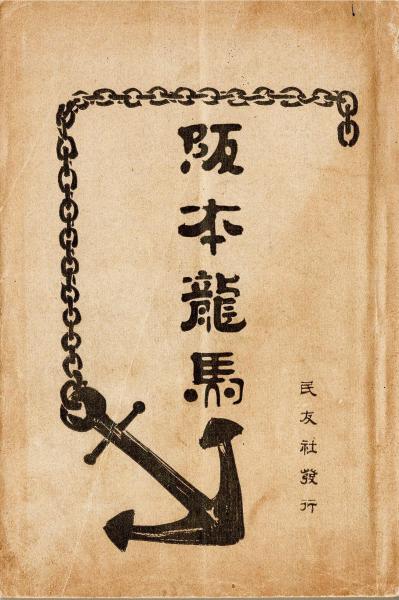 阪本龍馬
民友社發行